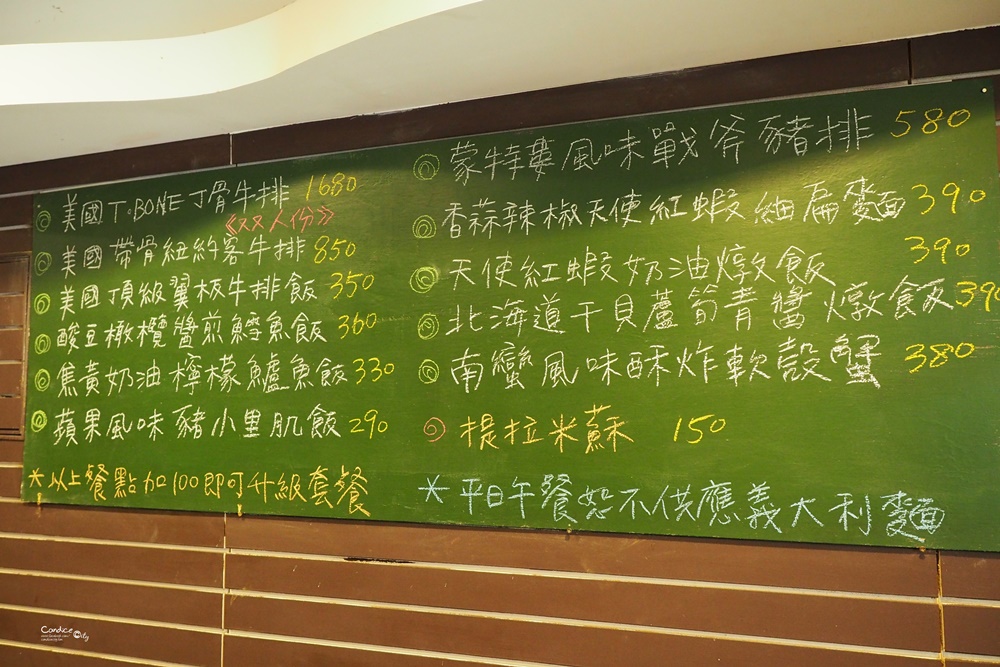 美國T.BONE丁骨牛排 1680
《双人份》
美國帶骨紐約客牛排 850
美國頂級翼板牛排飯 350
酸豆橄欖醬煎鱈魚飯 360
焦黃奶油檸檬鱸魚飯 330
蘋果風味豬小里肌飯 290
*以上餐點加100即可升級套餐
蒙特婁風味戰斧豬排 580
香蒜辣椒天使紅蝦細扁麵 390
天使紅蝦奶油燉飯 390
北海道干貝蘆筍青醬燉飯 390
南蠻風味酥炸軟殼蟹 380
提拉米蘇 150
*平日午餐恕不供應義大利麵
Candice